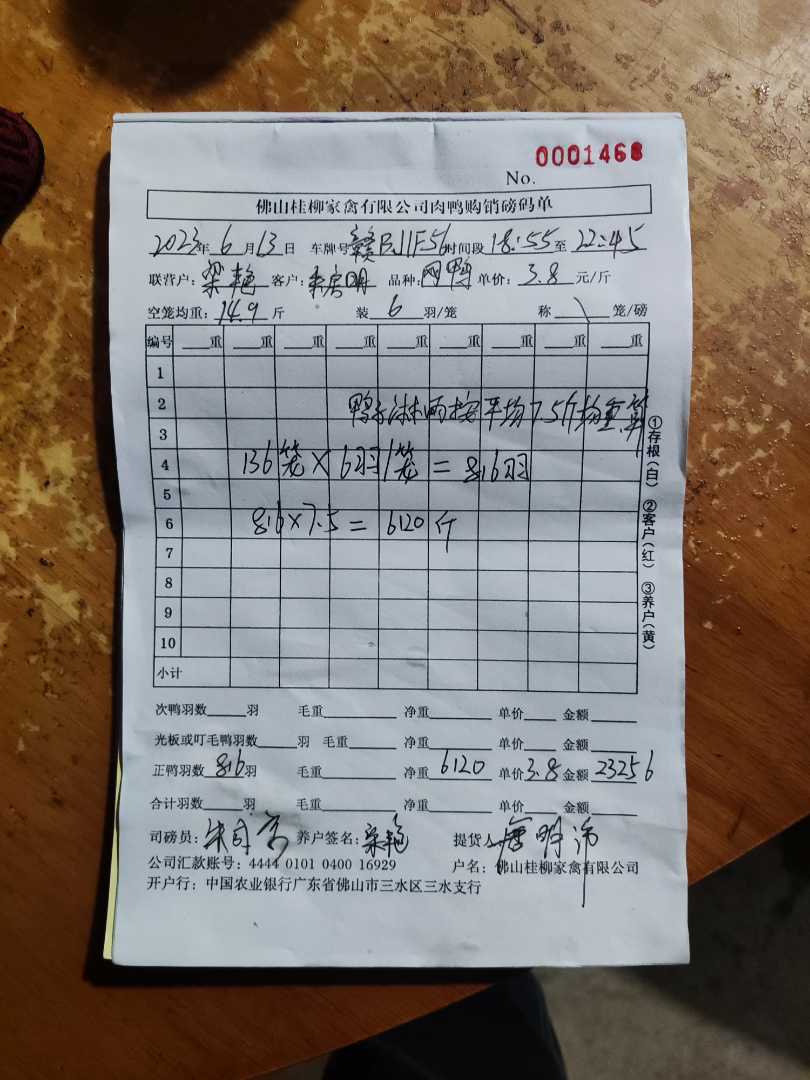 0001468
No.
佛山桂柳家禽有限公司肉鸭购销磅码单
2023年 6月13日 车牌号赣BJ1F56时间段18:55至22:45
联营户：梁艳 客户： 明 品种： 鸭 单价：3.8元/斤
空笼均重：14.9斤 装 6 羽/笼 称 \ 笼/磅
编号 重 重 重 重 重 重 重 重 重
1
2 鸭子淋雨按平均7.5斤均重算
3
4 136笼×6羽/笼=816羽
5
6 816×7.5=6120斤
7
8
9
10
小计
①存根(白) ②客户(红) ③养户(黄)
次鸭羽数 羽 毛重 净重 单价 金额
光板或叮毛鸭羽数 羽 毛重 净重 单价 金额
正鸭羽数816羽 毛重 净重6120 单价3.8金额23256
合计羽数 羽 毛重 净重 单价 金额
司磅员：朱 养户签名：梁艳 提货人 明
公司汇款账号：4444 0101 0400 16929 户名：佛山桂柳家禽有限公司
开户行：中国农业银行广东省佛山市三水区三水支行